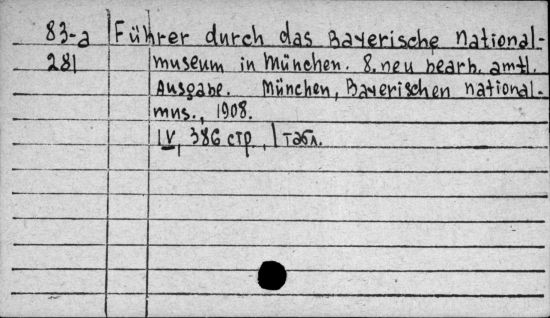 83-a Führer durch das Bayerische National-
281 museum in München. 8. neu bearb. amtl.
Ausgabe. München, Bayerischen national-
mus., 1908.
IV, 386 стр., 1 табл.